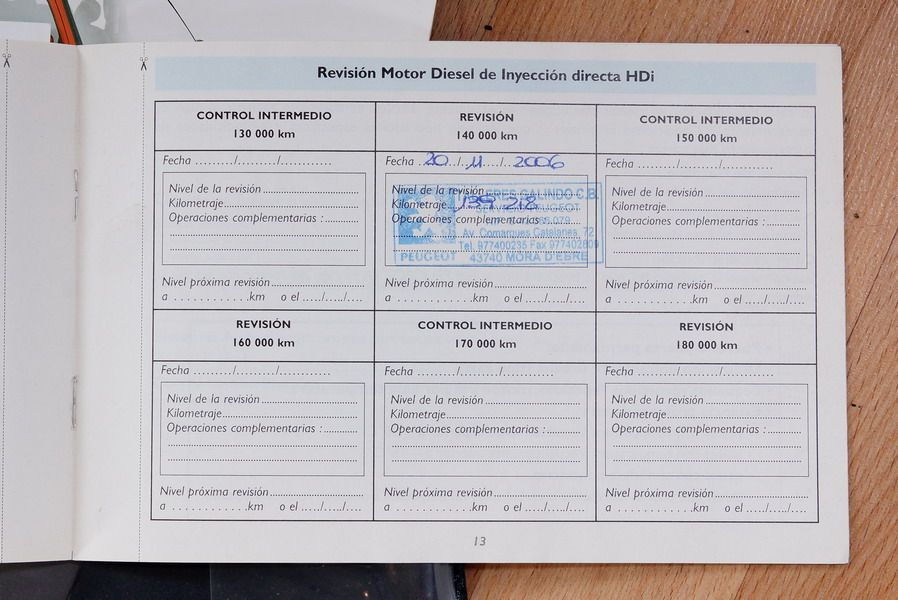 Revisión Motor Diesel de Inyección directa HDi
CONTROL INTERMEDIO
130 000 km
Fecha ........./........./...........
Nivel de la revisión
Kilometraje
Operaciones complementarias :
Nivel próxima revisión
a . . . . . . . . . . .km o el ...../...../....
REVISIÓN
140 000 km
Fecha 20 / 11 / 2006
Nivel de la revisión
Kilometraje 139 218
Operaciones complementarias
GALINDO C.B.
PEUGEOT
Av. Comarques Catalanes, 72
Tel. 977400235 Fax 977402809
PEUGEOT 43740 MORA D'EBRE
Nivel próxima revisión
a . . . . . . . . . . .km o el ...../...../....
CONTROL INTERMEDIO
150 000 km
Fecha ........./........./...........
Nivel de la revisión
Kilometraje
Operaciones complementarias :
Nivel próxima revisión
a . . . . . . . . . . .km o el ...../...../....
REVISIÓN
160 000 km
Fecha ........./........./...........
Nivel de la revisión
Kilometraje
Operaciones complementarias :
Nivel próxima revisión
a . . . . . . . . . . .km o el ...../...../....
CONTROL INTERMEDIO
170 000 km
Fecha ........./........./...........
Nivel de la revisión
Kilometraje
Operaciones complementarias :
Nivel próxima revisión
a . . . . . . . . . . .km o el ...../...../....
REVISIÓN
180 000 km
Fecha ........./........./...........
Nivel de la revisión
Kilometraje
Operaciones complementarias :
Nivel próxima revisión
a . . . . . . . . . . .km o el ...../...../....
13